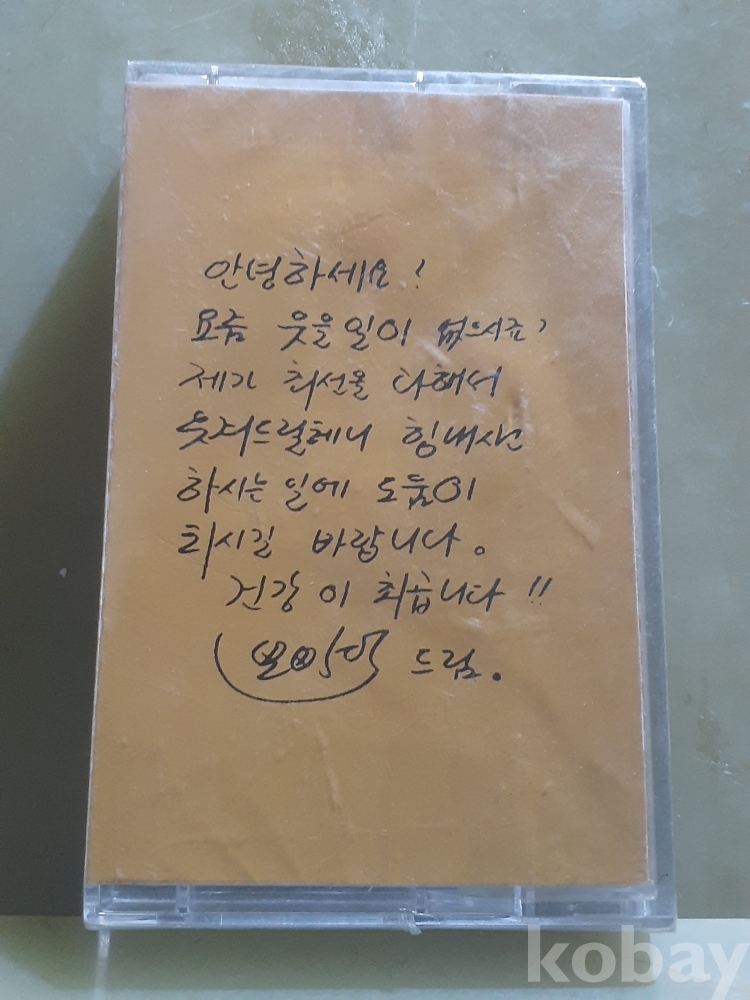 안녕하세요!
요즘 웃을일이 없으시죠?
제가 최선을 다해서
웃겨드릴테니 힘내시고
하시는 일에 도움이
되시길 바랍니다.
건강이 최곱니다!!
드림.
kobay